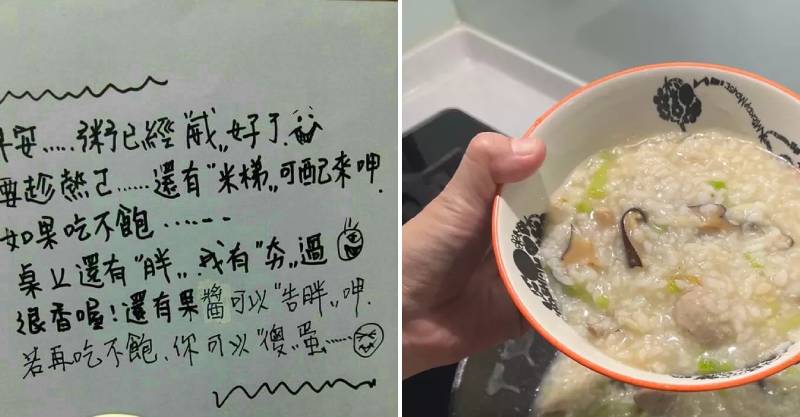 早安.....粥已經"戚"好了.
要趁熱己......還有"米梯"可配來呷.
如果吃不飽.......
桌上還有"胖"..我有"夯"過
很香喔!還有果醬可以"告胖"呷.
若再吃不飽.你可以"傻"蛋......